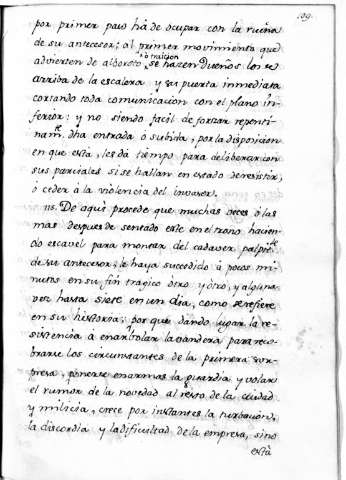 109.
por primer paso há de ocupar con la ruina
de su antecesor; al primer movimiento que
ó traicion
advierten de alboroto, se hacen Dueños los de
arriba de la escalera, y su puerta inmediata
cortando toda comunicacion con el plano in-
ferior: y no siendo facil de forzar repenti-
namte. dha entrada ó subida, por la disposicion
en que está, les dá tiempo para deliberar con
sus parciales si se hallan en estado de resistir,
ó ceder à la violencia del invasor.
115. De aqui procede que muchas veces ó las
mas despues de sentado este en el trono, hacien-
do escavel para montar del cadaver palpite.
de su antecesor, le haya succedido à pocos mi-
nutos en su fin trágico otro y otro, y alguna
vez hasta siete en un dia, como se refiere
en su historia; por que dando lugar la re-
sistencia à enarbolar la vandera para reco-
brarse los circunstantes de la primera sor-
presa, ponerse en armas la guardia y volar
el rumor de la novedad al resto de la ciudad
y milicia, crece por instantes la turbacion,
la discordia y la dificultad de la empresa, sino
está